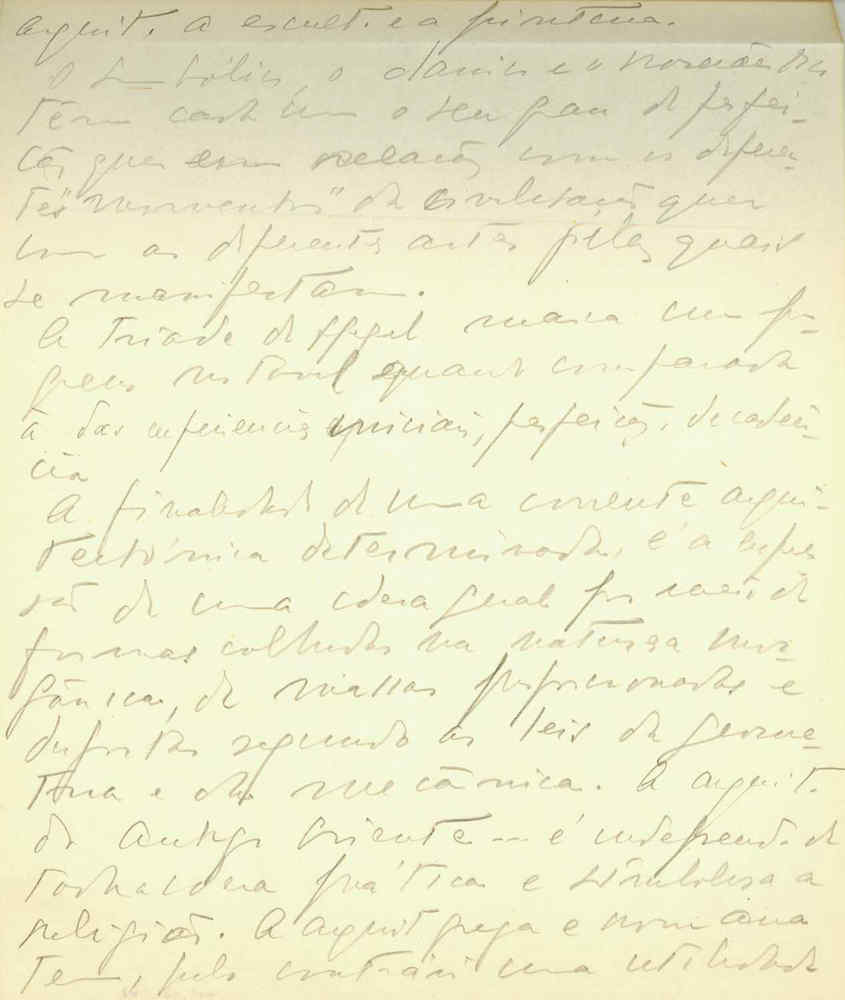 arquit. a escult. e a pintura.
O simbólico, o clássico e o romântico
têm cada um o seu grau de perfei-
ção quer em relação com os diferen-
tes "movimentos" da civilização quer
com as diferentes artes pelas quais
se manifestam.
A Triade de Hegel marca um pro-
gresso notável quando comparada
à das experiências iniciais, perfeição, decadên-
cia
A finalidade de uma corrente arqui-
tectónica determinada, é a expres
são de uma ideia geral por meio de
formas colhidas na natureza inor-
gânica, de massas proporcionadas e
dispostas segundo as leis da geome-
tria e da mecânica. A arquit.
do Antigo Oriente — é independ. de
toda ideia prática e simboliza a
religião. A arquit grega e romana
tem, pelo contrário uma utilidade